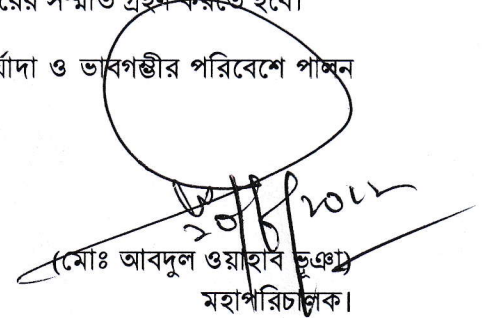 য়ের সম্মতি গ্রহণ করতে হবে।
র্যাদা ও ভাবগম্ভীর পরিবেশে পালন
2012
(মোঃ আবদুল ওয়াহাব ভূঞা)
মহাপরিচালক।